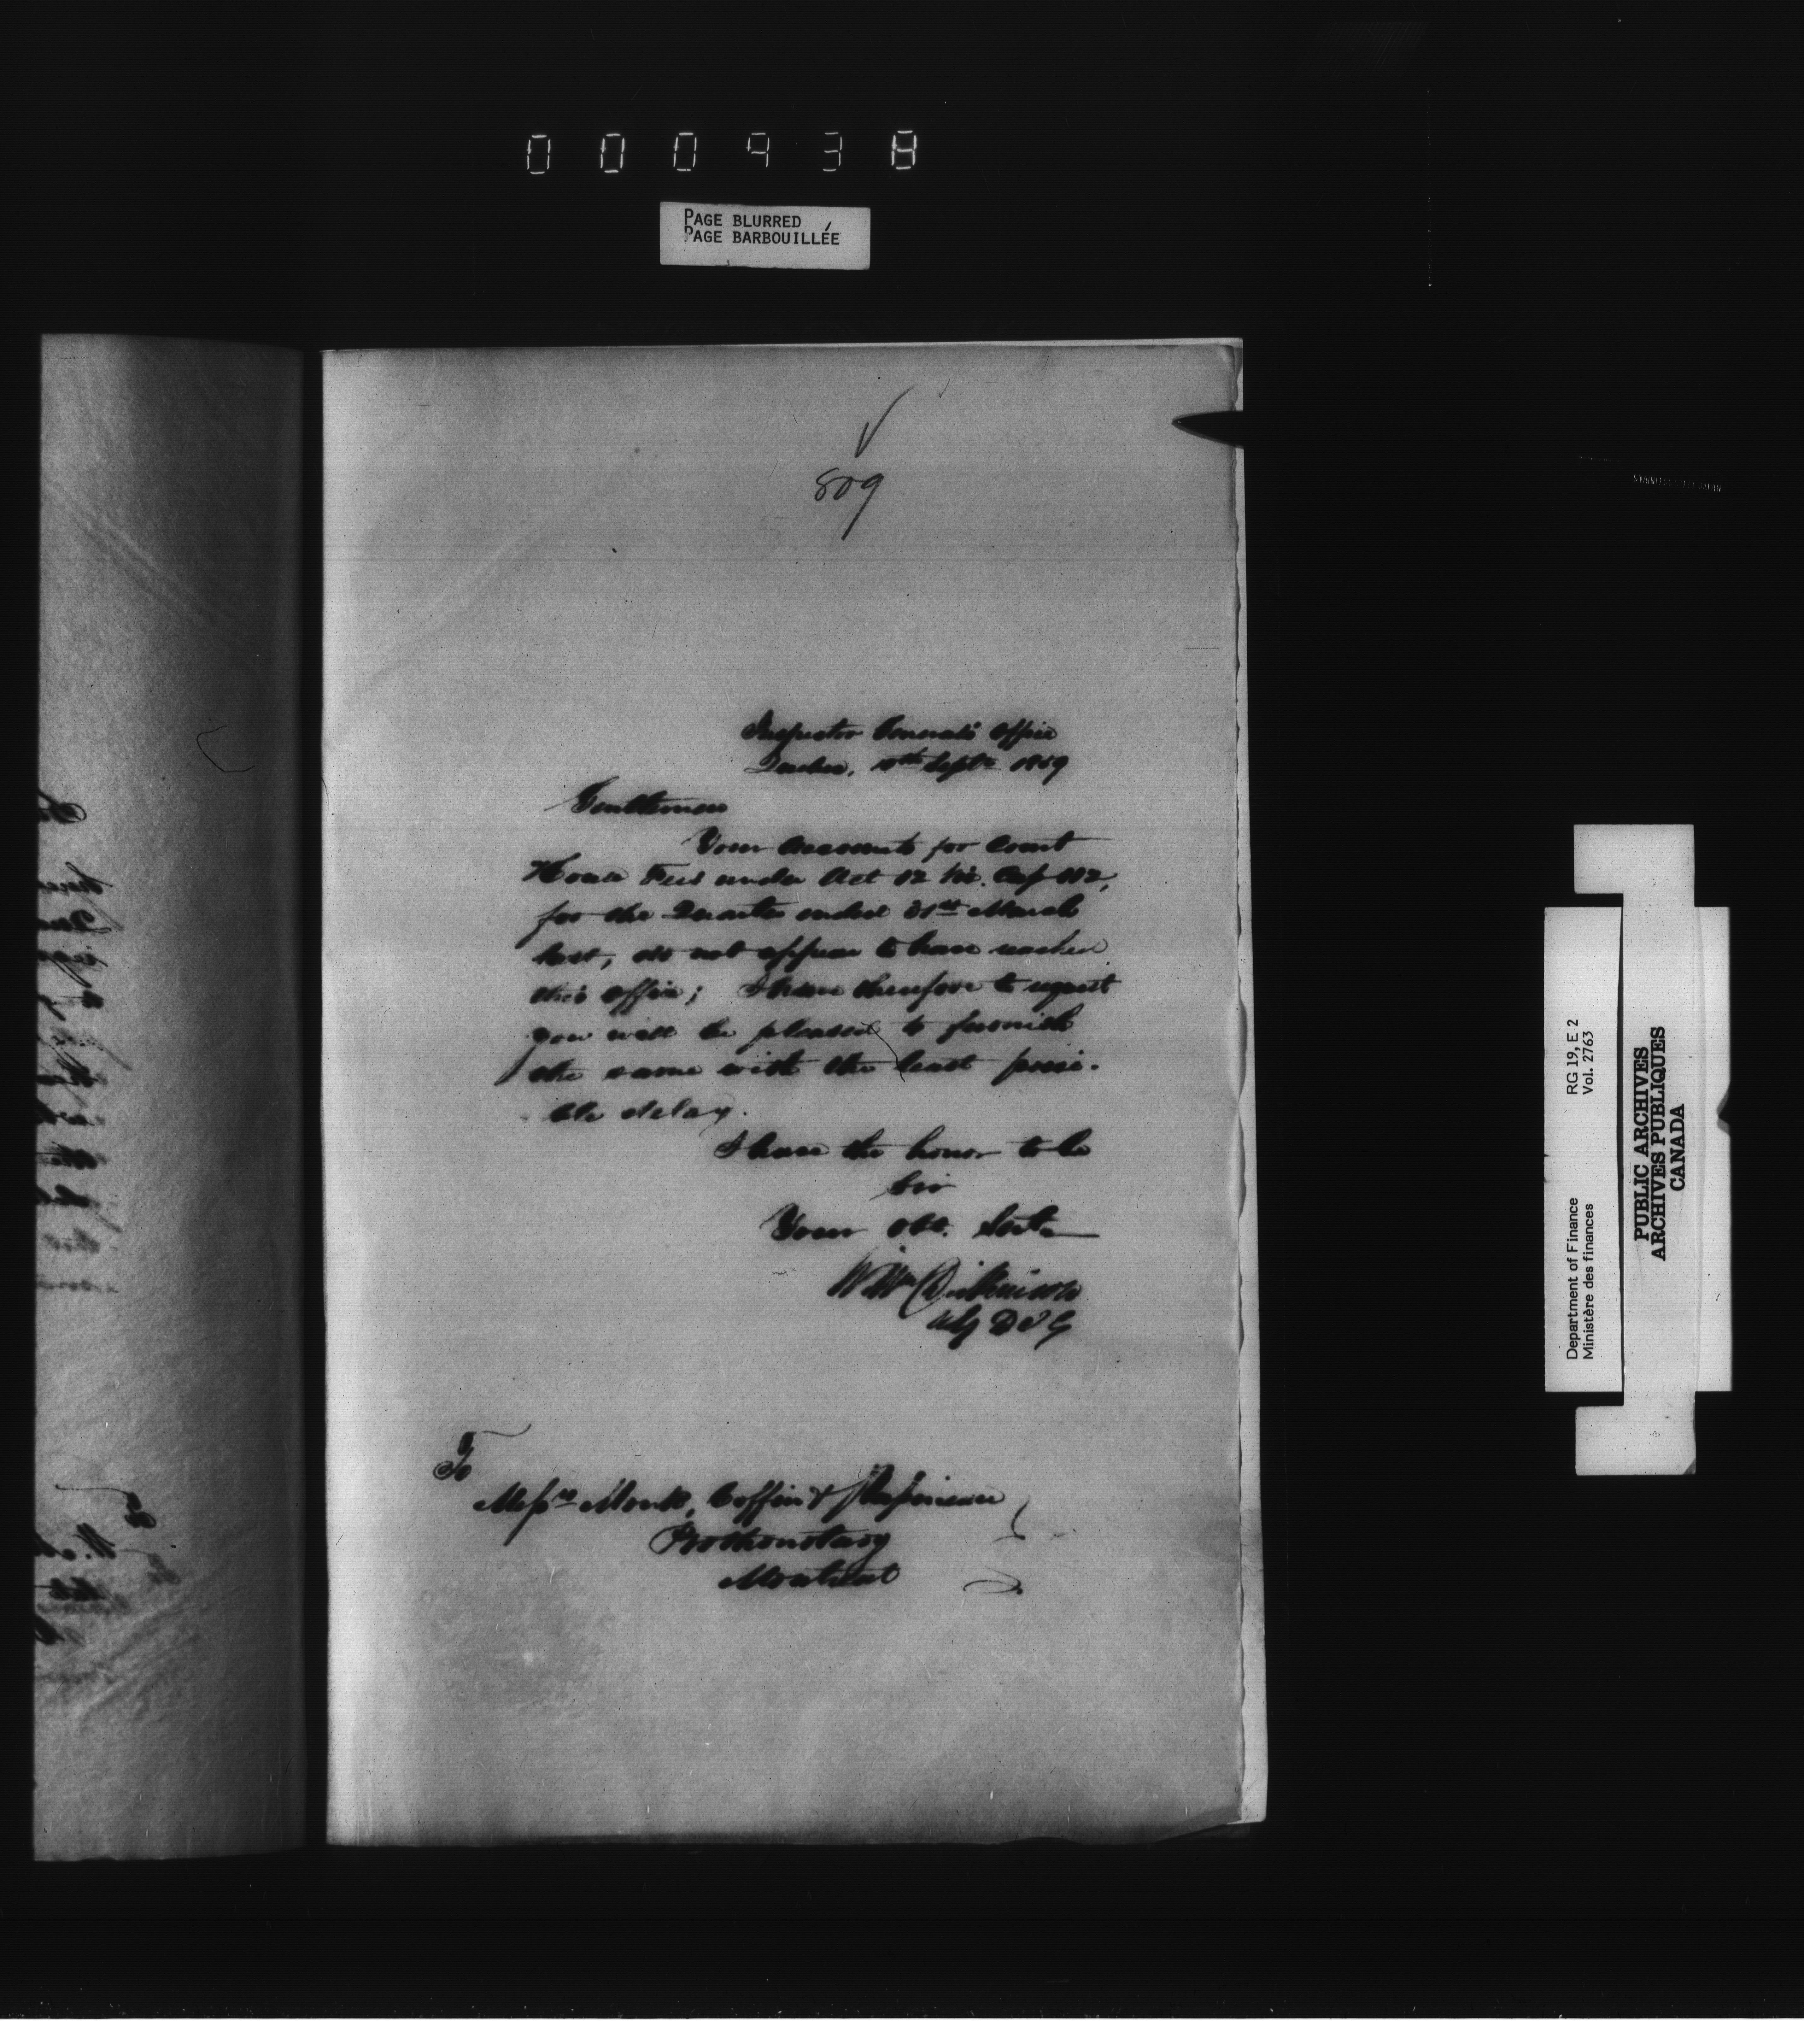 PAGE BLURRED
PAGE BARBOUILLÉE
809
Inspector General's Office
Quebec, Septr. 1859
Gentlemen
Your Accounts for Court
House Fees under Act 12 Vic. Cap 112,
for the Quarter ended 31st March
last, do not appear to have reached
this office; I have therefore to request
you will be pleased to furnish
the same with the least possi-
ble delay.
I have the honor to be
Sir
Your Obt. Servt.
Wm Dickinson
Actg D I G
To
Messrs Monk, Coffin & Papineau
Prothonotary
Montreal
Department of Finance RG 19, E 2
Ministère des finances Vol. 2763
PUBLIC ARCHIVES
ARCHIVES PUBLIQUES
CANADA